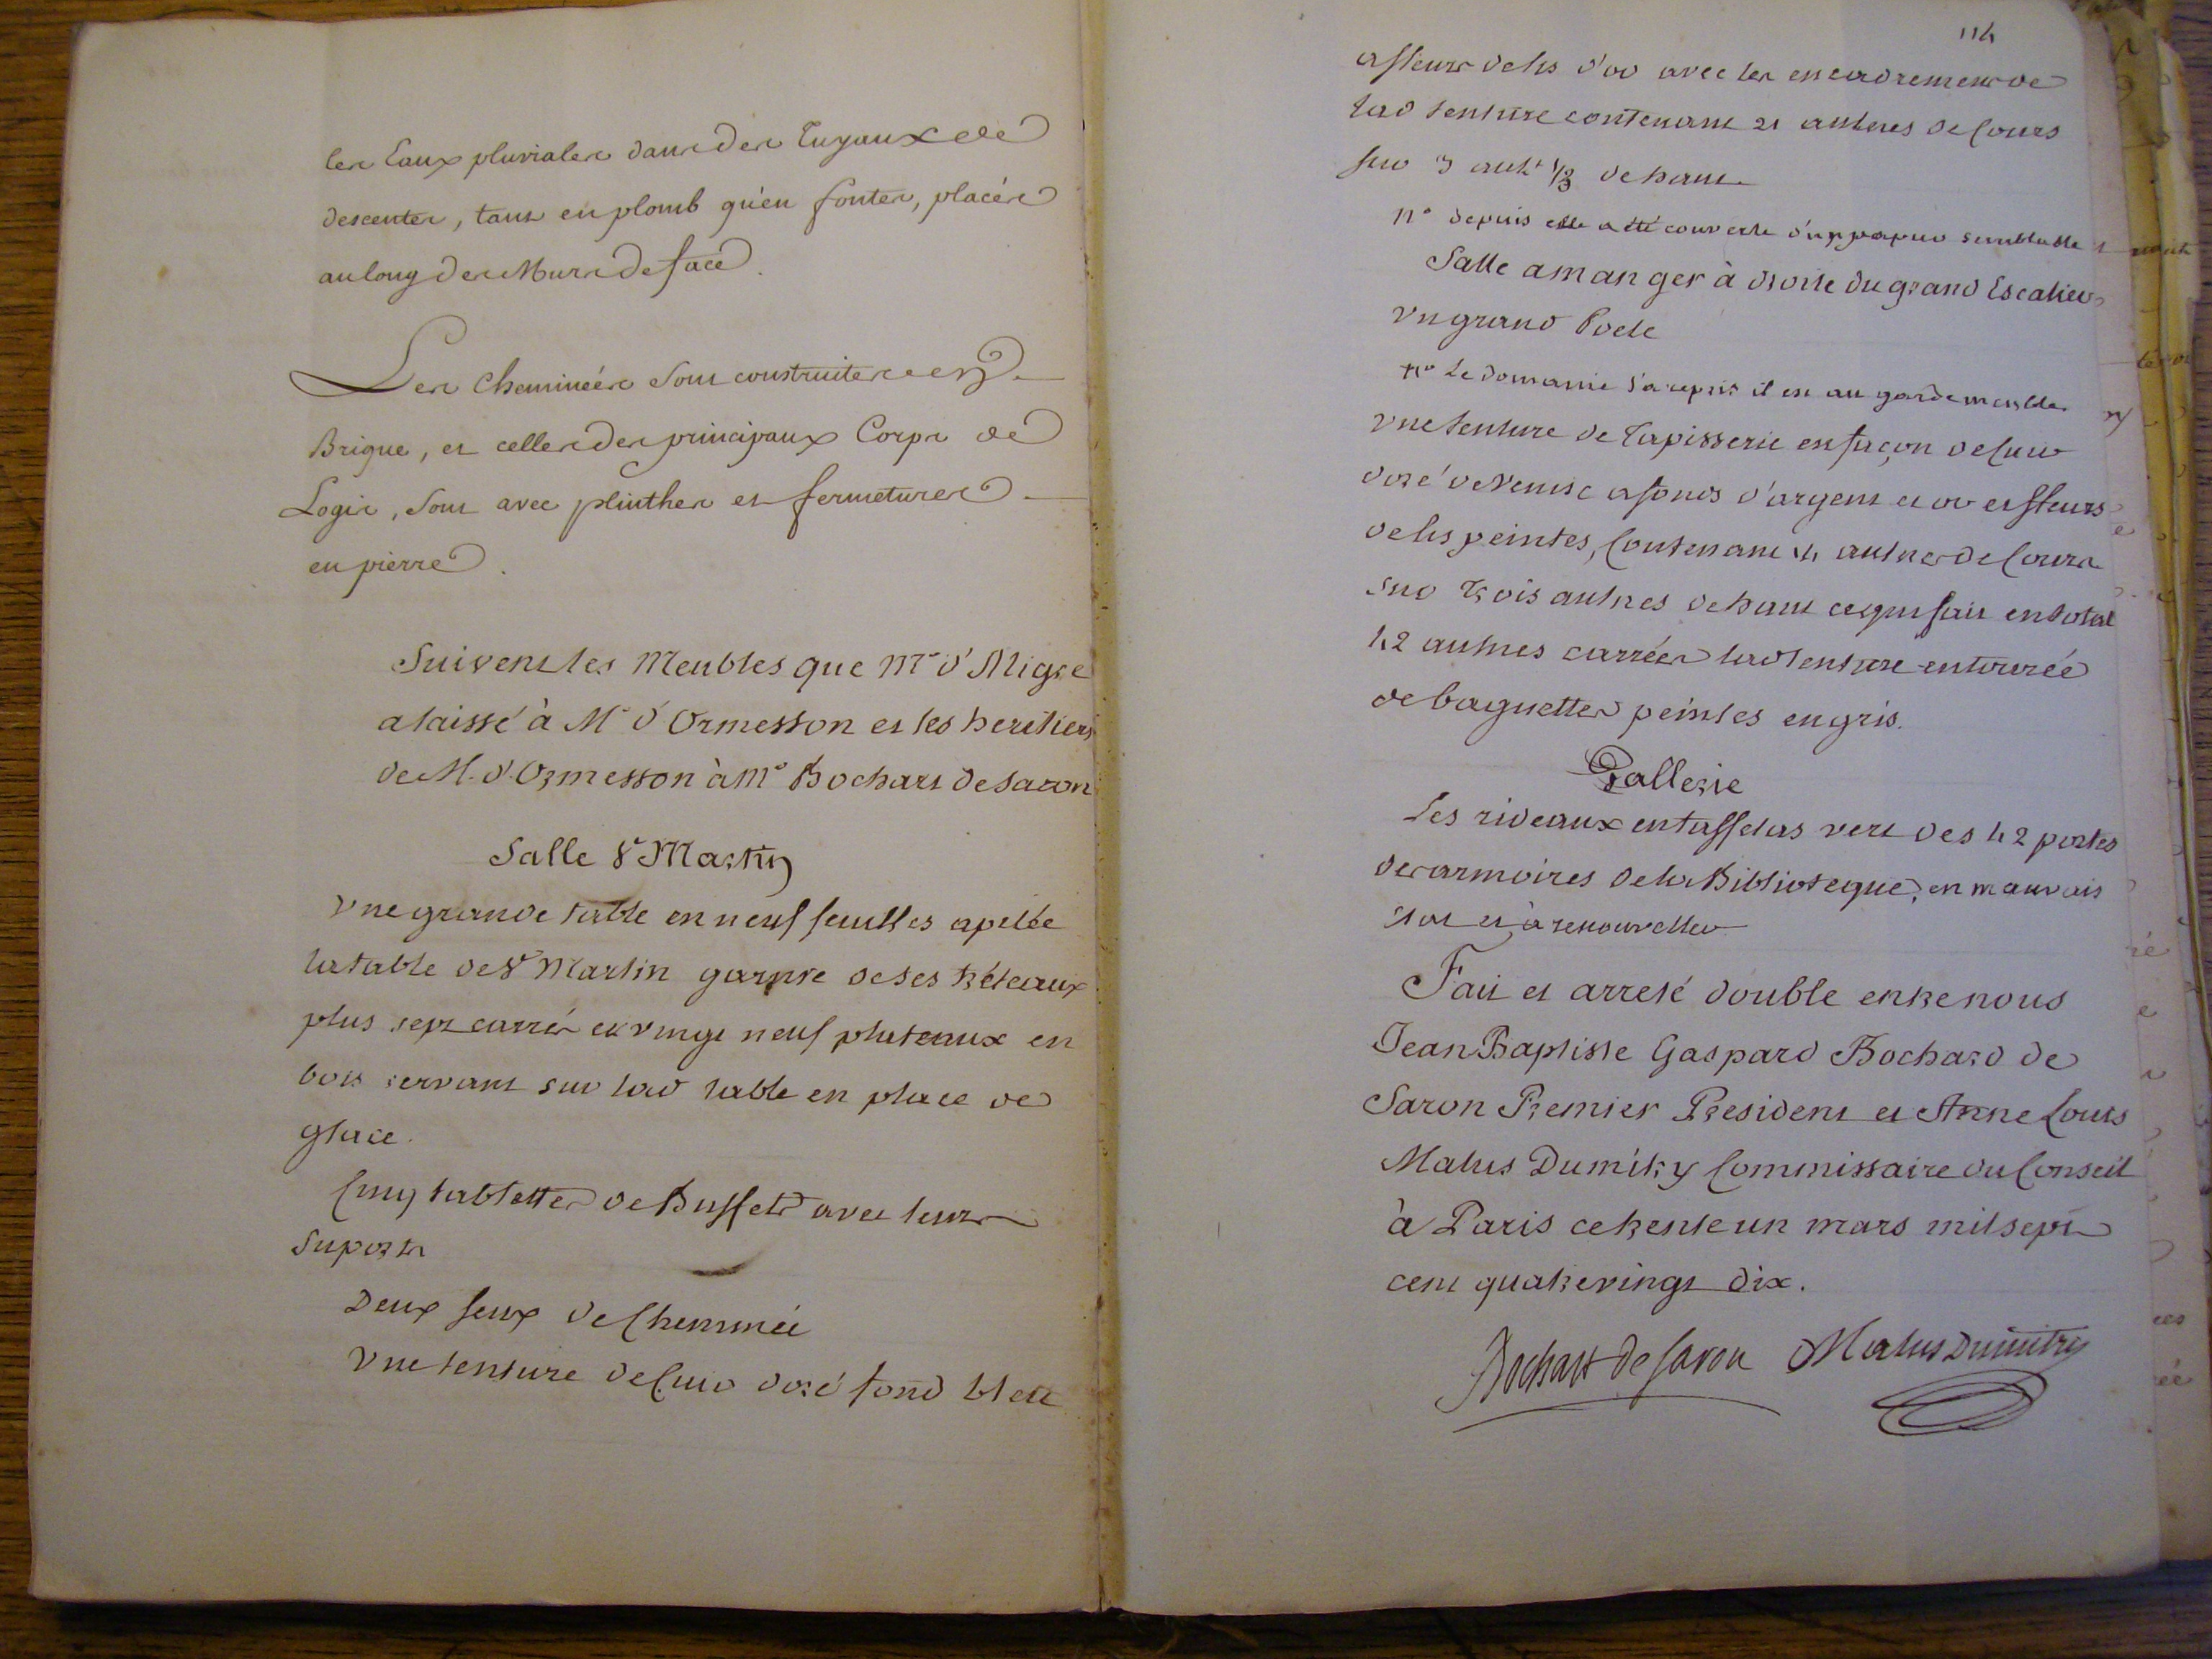 les Eaux pluviales dans des Tuyaux de
descentes, tant en plomb qu'en fontes, placés
au long des Murs de face.
Les Cheminées sont construites en
Brique, et celles des principaux Corps de
Logis, sont avec plinthes et fermetures
en pierre.
Suivent les Meubles que Mr d'Aligre
a laissé à Mr d'Ormesson et les heritiers
de M. d'Ormesson à Mr Bochart de Saron
Salle St Martin
Une grande table en neuf feuilles apellée
la table de St Martin garnie de ses tréteaux
plus sept carrés et vingt neuf plateaux en
bois servant sur lad table en place de
glace.
Cinq tablettes de Buffets avec leurs
suports
Deux feux de Cheminée
Une tenture de Cuir doré fond bleu
114
a fleurs de lis d'or avec les encadremens de
lad tenture contenant 21 aulnes de Cours
sur 3 aulnes 1/3 de haut
no depuis elle a été couverte d'un papier semblable
Salle a manger à droite du grand Escalier
Un grand Poele
no Le domaine l'a repris il est au garde meubles
Une tenture de Tapisserie en façon de Cuir
doré de Venise a fonds d'argent et or et fleurs
de lis peintes, Contenant 14 aulnes de Cours
sur trois aulnes de haut ce qui fait en total
42 aulnes carrées lad tenture entourée
de baguettes peintes en gris.
Gallerie
Les rideaux en taffetas vert des 42 portes
des armoires de la Biblioteque, en mauvais
etat et à renouveller
Fait et arresté double entre nous
Jean Baptiste Gaspard Bochard de
Saron Premier President et Anne Louis
Malus Dumitry Commissaire du Conseil
à Paris ce trente un mars mil sept
cent quatrevingt dix.
Bochart de Saron Malus Dumitry